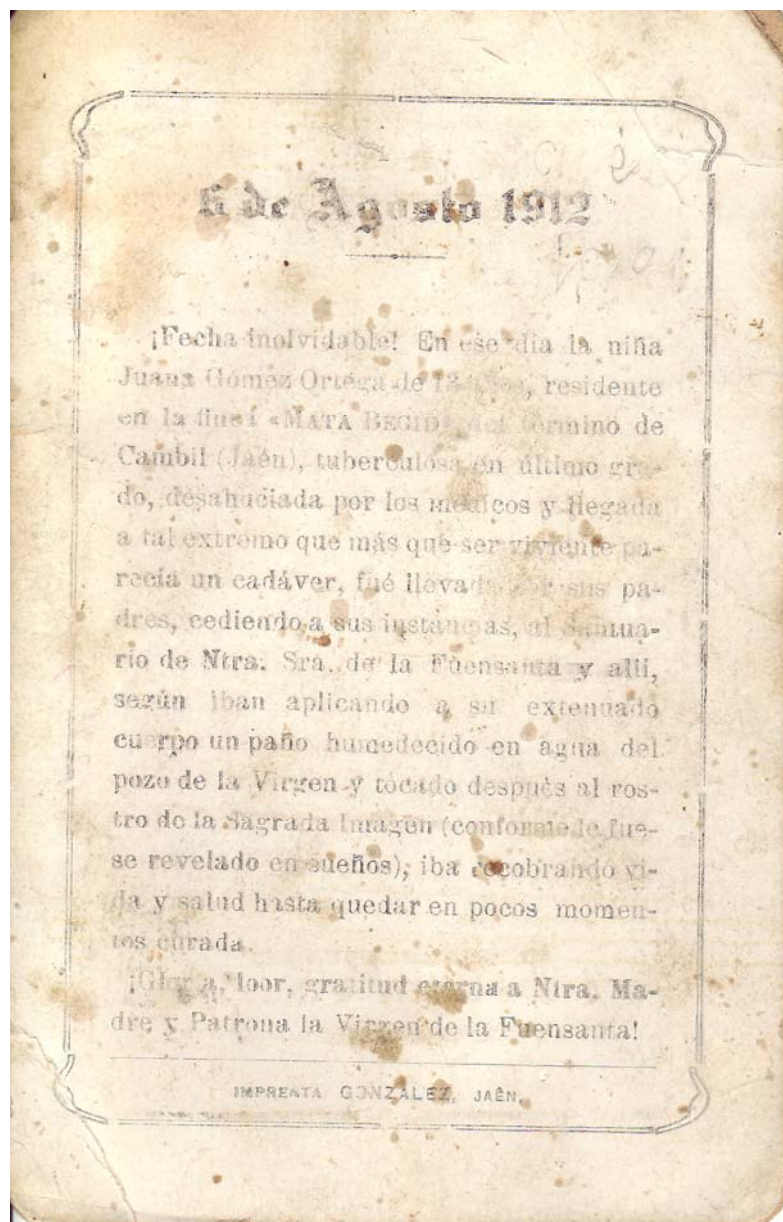 de Agosto 1912
¡Fecha inolvidable! En ese dia la niña
Juana Gómez Ortéga de 13 años, residente
en la finca «MATA BEGID» del término de
Cambil (Jaén), tuberculosa en último gra-
do, desahuciada por los médicos y llegada
a tal extremo que más que ser viviente pa-
recía un cadáver, fué llevada por sus pa-
dres, cediendo a sus instancias, al Santua-
rio de Ntra. Sra. de la Fuensanta y allí,
según iban aplicando a su extenuado
cuerpo un paño humedecido en agua del
pozo de la Virgen y tocado después al ros-
tro de la Sagrada Imagen (conforme le fue-
se revelado en sueños), iba recobrando vi-
da y salud hasta quedar en pocos momen-
tos curada.
¡Gloria, loor, gratitud eterna a Ntra. Ma-
dre y Patrona la Virgen de la Fuensanta!
IMPRENTA GONZALEZ, JAÉN.